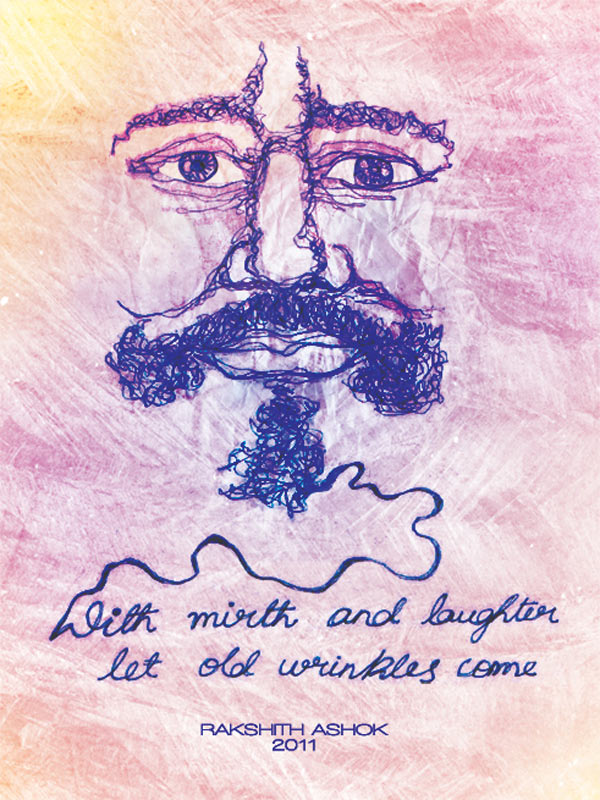 With mirth and laughter
let old wrinkles come
RAKSHITH ASHOK
2011